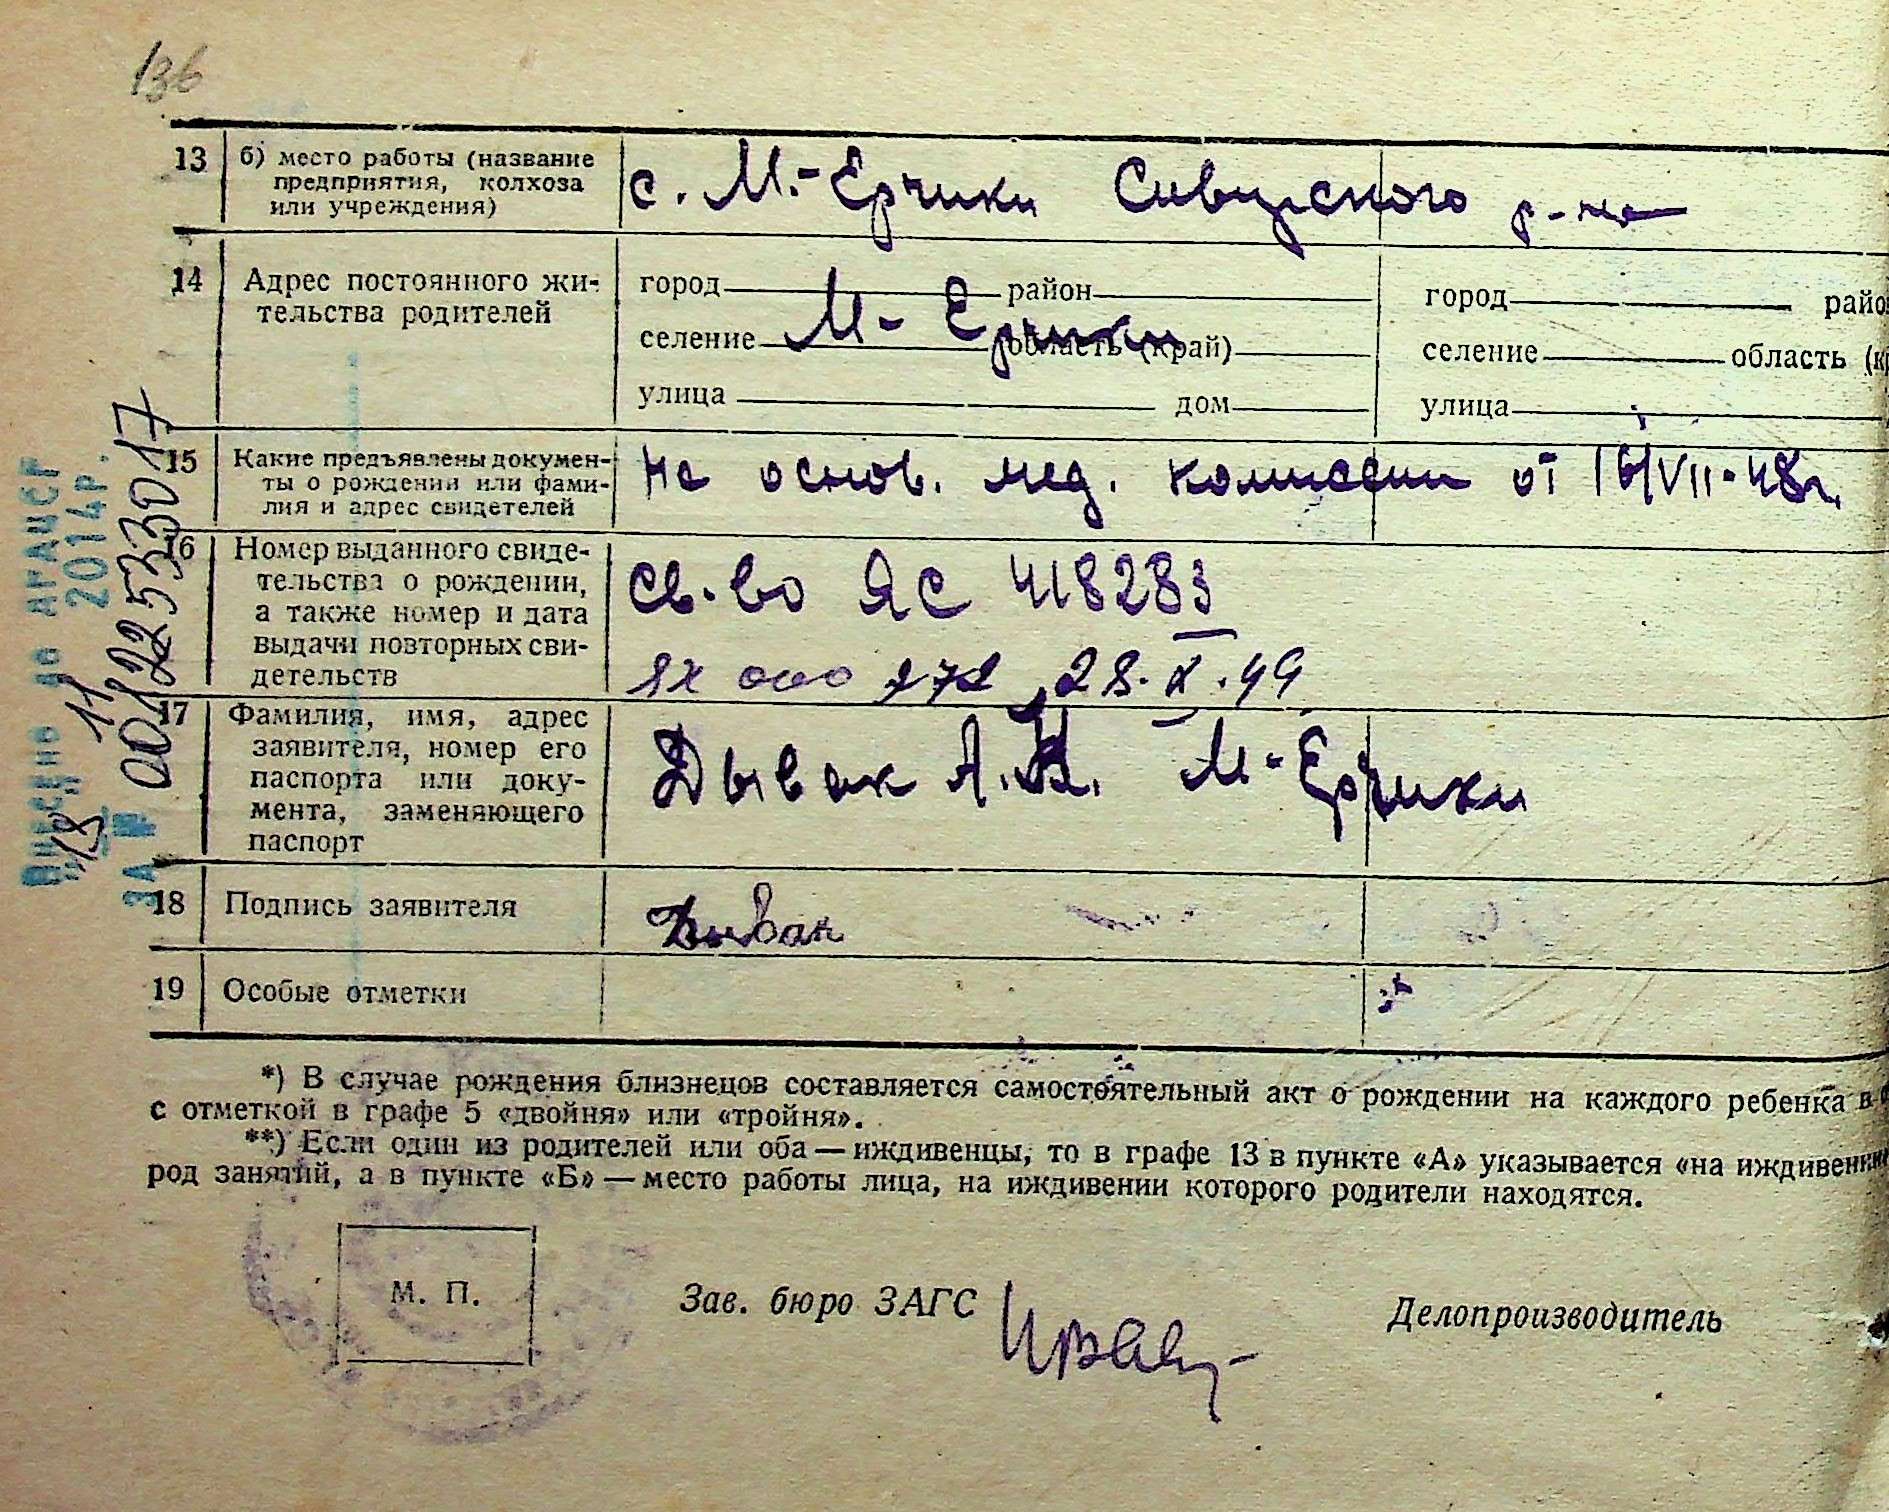 136
13 б) место работы (название
предприятия, колхоза
или учреждения)
с. М.-Ерчики Сквирского р-на
14 Адрес постоянного жи-
тельства родителей
город район
селение М- Ерчики область (край)
улица дом
город райо
селение область (к
улица
15 Какие предъявлены докумен-
ты о рождении или фами-
лия и адрес свидетелей
на основ. мед. комиссии от 16/VII-48г.
16 Номер выданного свиде-
тельства о рождении,
а также номер и дата
выдачи повторных сви-
детельств
св-во ЯС 418283
28.X.49
17 Фамилия, имя, адрес
заявителя, номер его
паспорта или доку-
мента, заменяющего
паспорт
Дывак А.Н. М-Ерчики
18 Подпись заявителя
Дывак
19 Особые отметки
Внесено до ДРАЦСГ
"18" 11 2014р.
ЗА № 00122533017
*) В случае рождения близнецов составляется самостоятельный акт о рождении на каждого ребенка в
с отметкой в графе 5 «двойня» или «тройня».
**) Если один из родителей или оба — иждивенцы, то в графе 13 в пункте «А» указывается «на иждивении
род занятий, а в пункте «Б» — место работы лица, на иждивении которого родители находятся.
М. П.
Зав. бюро ЗАГС
Делопроизводитель